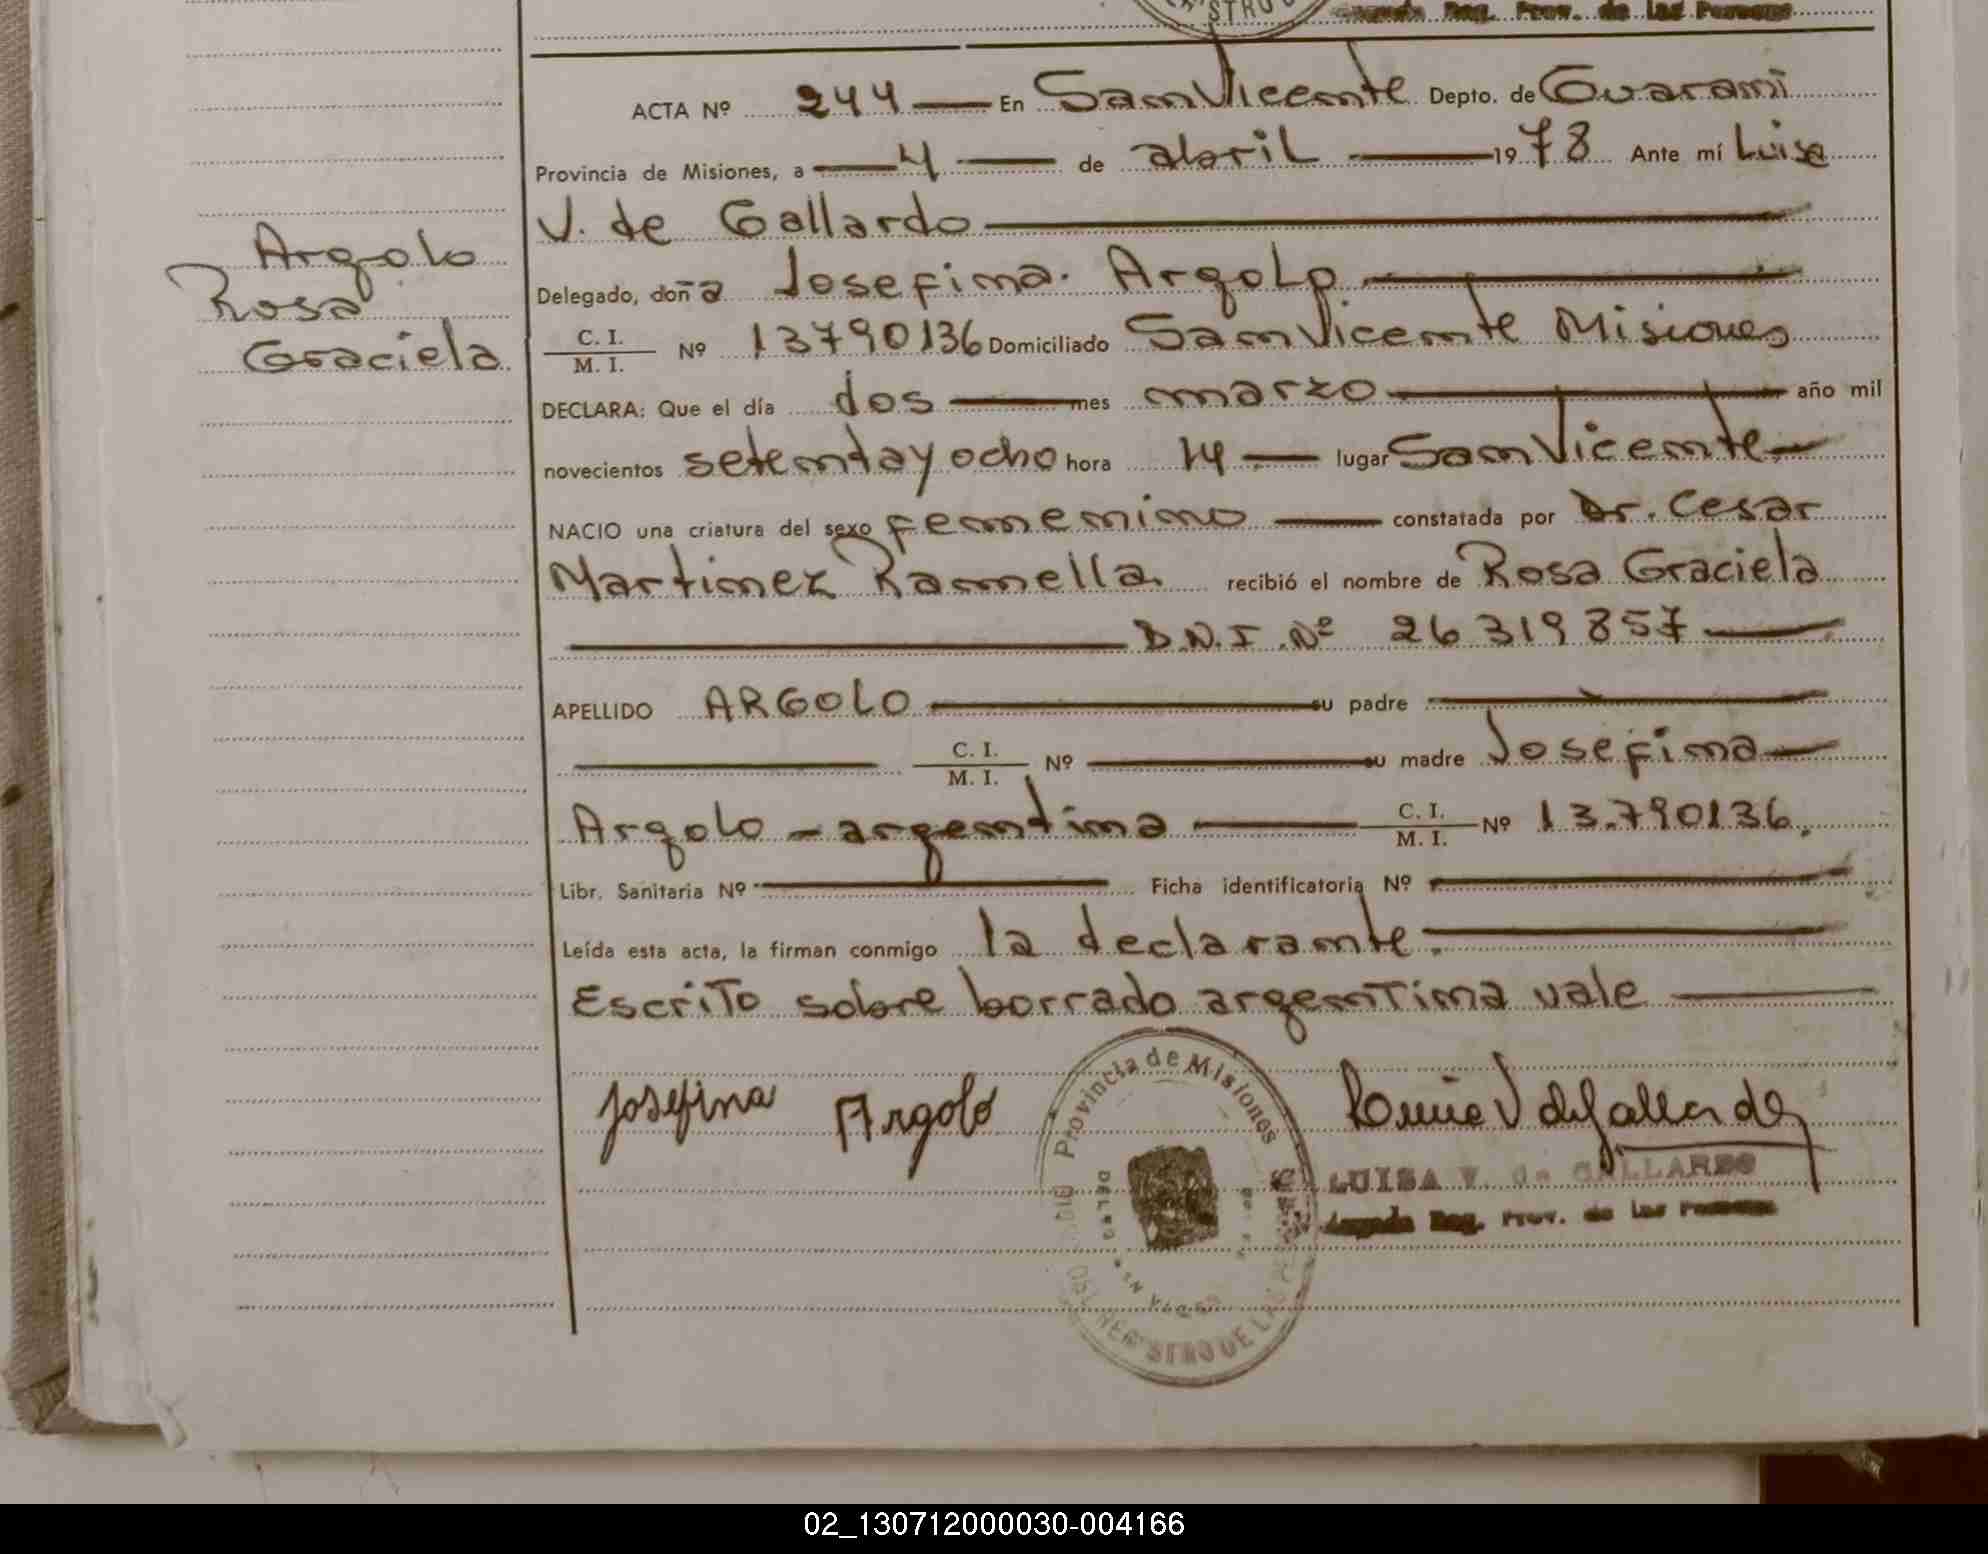 STRO
Reg. Prov. de las Personas
ACTA Nº 244 En San Vicente Depto. de Guaraní
Provincia de Misiones, a 4 de abril 1978 Ante mí Luisa
V. de Gallardo
Argolo
Rosa
Graciela
Delegado, doña Josefina Argolo
C. I. / M. I. Nº 13790136 Domiciliado San Vicente Misiones
DECLARA: Que el día dos mes marzo año mil
novecientos setentayocho hora 14 lugar San Vicente
NACIO una criatura del sexo femenino constatada por Dr. Cesar
Martinez Ramella recibió el nombre de Rosa Graciela
D.N.I. Nº 26319857
APELLIDO ARGOLO su padre
C. I. / M. I. Nº su madre Josefina
Argolo - argentina C. I. / M. I. Nº 13.790136.
Libr. Sanitaria Nº Ficha identificatoria Nº
Leída esta acta, la firman conmigo la declarante.
Escrito sobre borrado argentina vale
Josefina Argolo
Luisa V de Gallardo
Provincia de Misiones
LUISA V. de GALLARDO
Reg. Prov. de las Personas
02_130712000030-004166